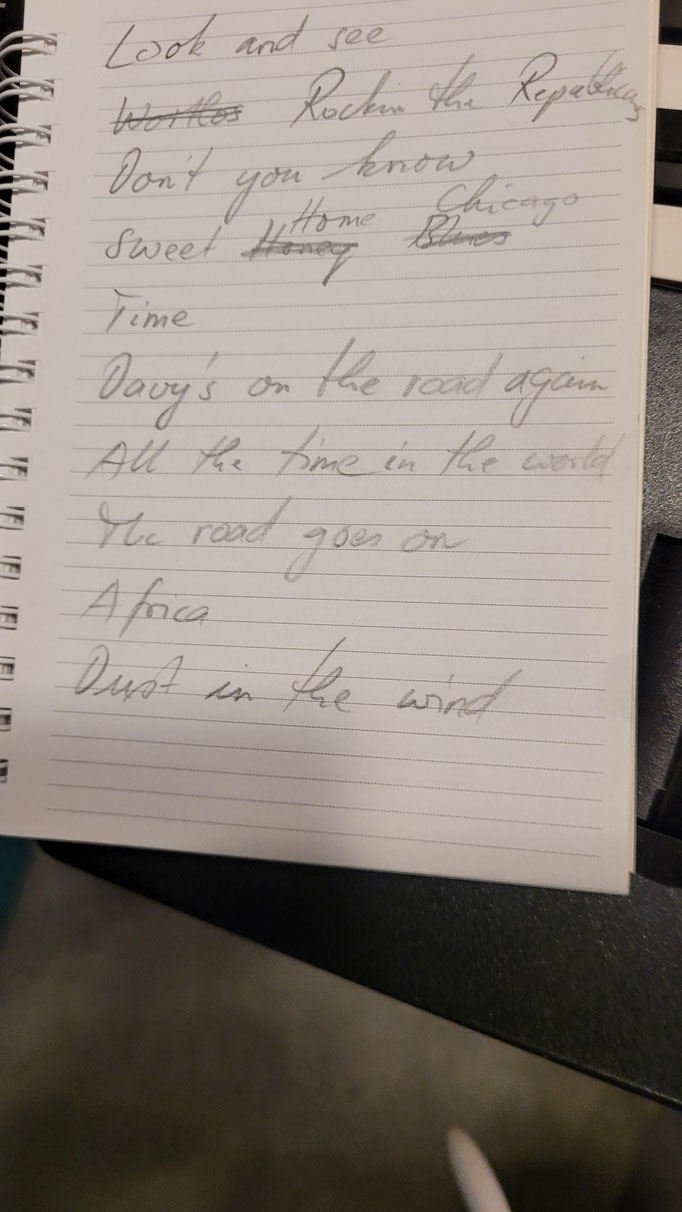 Look and see
Rockin the Republicans
Don't you know
Home Chicago
Sweet Honey Blues
Time
Davy's on the road again
All the time in the world
The road goes on
Africa
Dust in the wind